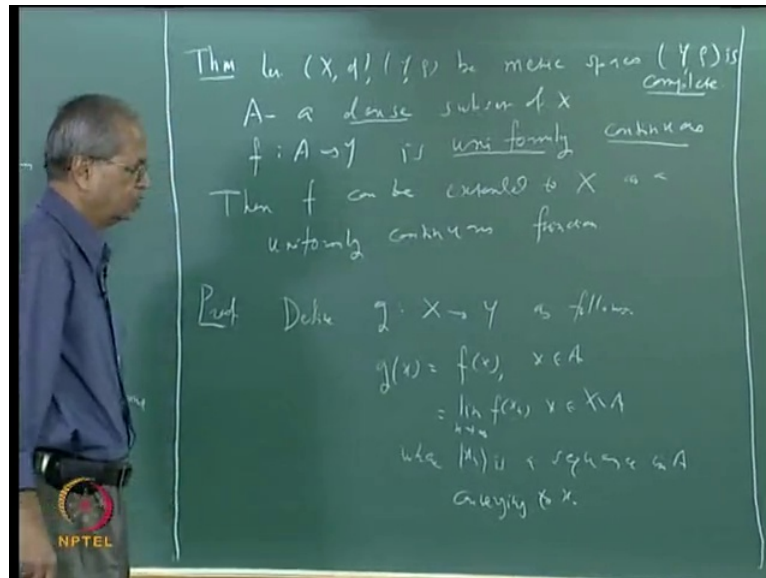 Thm Let (X, d), (Y, ρ) be metric spaces (Y, ρ) is
complete.
A - a dense subset of X
f : A → Y is uniformly continuous
Then f can be extended to X as a
uniformly continuous function
Proof Define g : X → Y as follows.
g(x) = f(x), x ∈ A
= lim n→∞ f(xn) x ∈ X \ A
where (xn) is a sequence in A
converging to x.
NPTEL